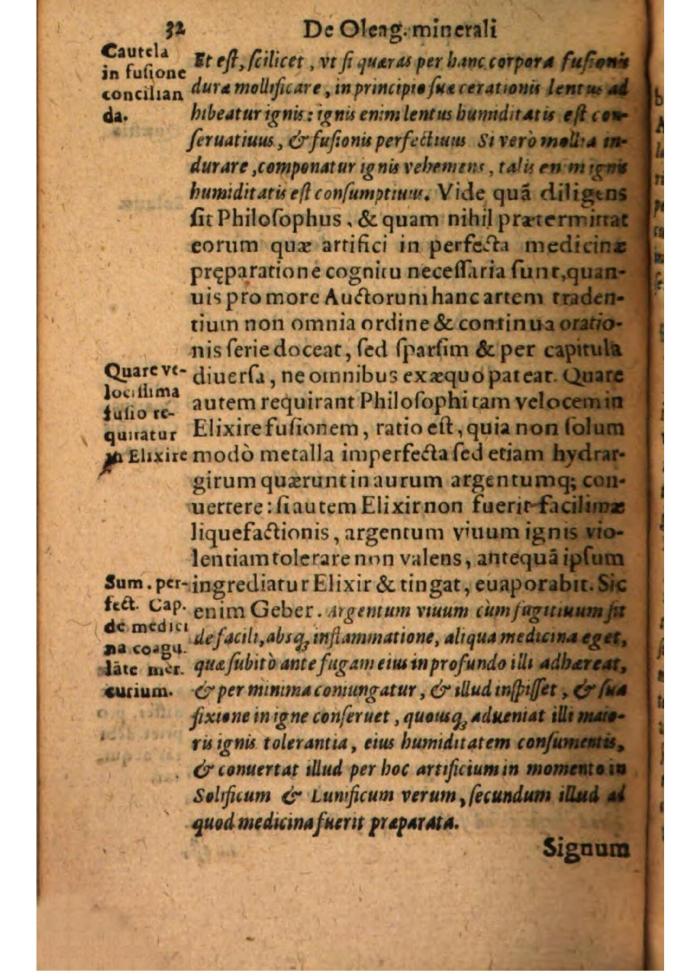 32
De Oleag. minerali
Cautela
in fusione
concilian
da.
Et est, scilicet, vt si quæras per hanc corpora fusionis
dura mollificare, in principio suæ cerationis lentus ad
hibeatur ignis: ignis enim lentus humiditatis est con-
seruatiuus, & fusionis perfectiuus Si verò mollia in-
durare, componatur ignis vehemens, talis enim ignis
humiditatis est consumptiuus. Vide quā diligens
sit Philosophus, & quam nihil prætermittat
eorum quæ artifici in perfecta medicinæ
pręparatione cognitu necessaria sunt, quan-
uis pro more Auctorum hanc artem traden-
tium non omnia ordine & continua oratio-
nis serie doceat, sed sparsim & per capitula
Quare ve-
locissima
fusio re-
quiratur
in Elixire
diuersa, ne omnibus ex æquo pateat. Quare
autem requirant Philosophi tam velocem in
Elixire fusionem, ratio est, quia non solum
modò metalla imperfecta sed etiam hydrar-
girum quærunt in aurum argentumq; con-
uertere: si autem Elixir non fuerit facilimæ
liquefactionis, argentum viuum ignis vio-
lentiam tolerare non valens, antequā ipsum
Sum. per-
fect. Cap.
de medici
na coagu.
lāte mer.
curium.
ingrediatur Elixir & tingat, euaporabit. Sic
enim Geber. Argentum viuum cùm fugitiuum sit
de facili, absq; inflammatione, aliqua medicina eget,
quæ subitò ante fugam eius in profundo illi adhæreat,
& per minima coniungatur, & illud inspisset, & sua
fixione in igne conseruet, quousq; adueniat illi maio-
ris ignis tolerantia, eius humiditatem consumentis,
& conuertat illud per hoc artificium in momento in
Solificum & Lunificum verum, secundum illud ad
quod medicina fuerit præparata.
Signum